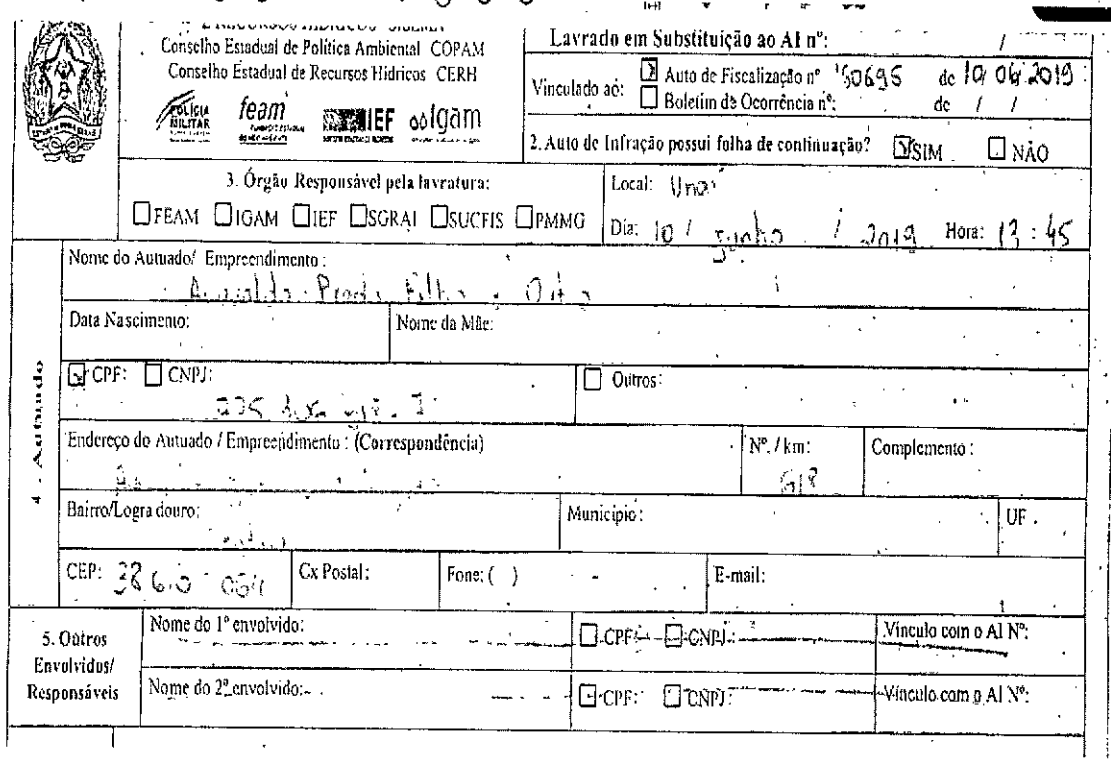 E RECURSOS HÍDRICOS SISEMA
Conselho Estadual de Política Ambiental COPAM
Conselho Estadual de Recursos Hídricos CERH
POLÍCIA MILITAR feam IEF igam
Lavrado em Substituição ao AI nº: /
Vinculado aó: Auto de Fiscalização nº 50695 de 10/06/2019
Boletim de Ocorrência nº: de / /
2. Auto de Infração possui folha de continuação? SIM NÃO
3. Órgão Responsável pela lavratura:
FEAM IGAM IEF SGRAI SUCFIS PMMG
Local: Unaí
Dia: 10 / junho / 2019 Hora: 13 : 45
4 - Autuado
Nome do Autuado/ Empreendimento :
Prado Filho
Data Nascimento: Nome da Mãe:
CPF: CNPJ: Outros:
Endereço do Autuado / Empreendimento : (Correspondência) Nº. / km: Complemento :
618
Bairro/Logra douro: Município : UF
CEP: Cx Postal: Fone: ( ) - E-mail:
5. Outros Envolvidos/ Responsáveis
Nome do 1º envolvido: CPF: CNPJ: Vínculo com o AI Nº:
Nome do 2º envolvido: CPF: CNPJ: Vínculo com o AI Nº: